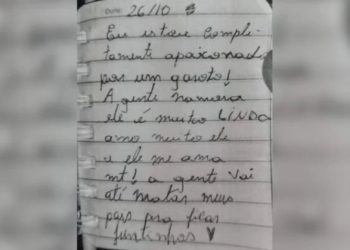 Date: 26/10
Eu estou comple-
tamente apaixonada
por um garoto!
A gente namora
ele é muito LINDO
amo muito ele
e ele me ama
mt! a gente vai
até matar meus
pais pra ficar
juntinhos